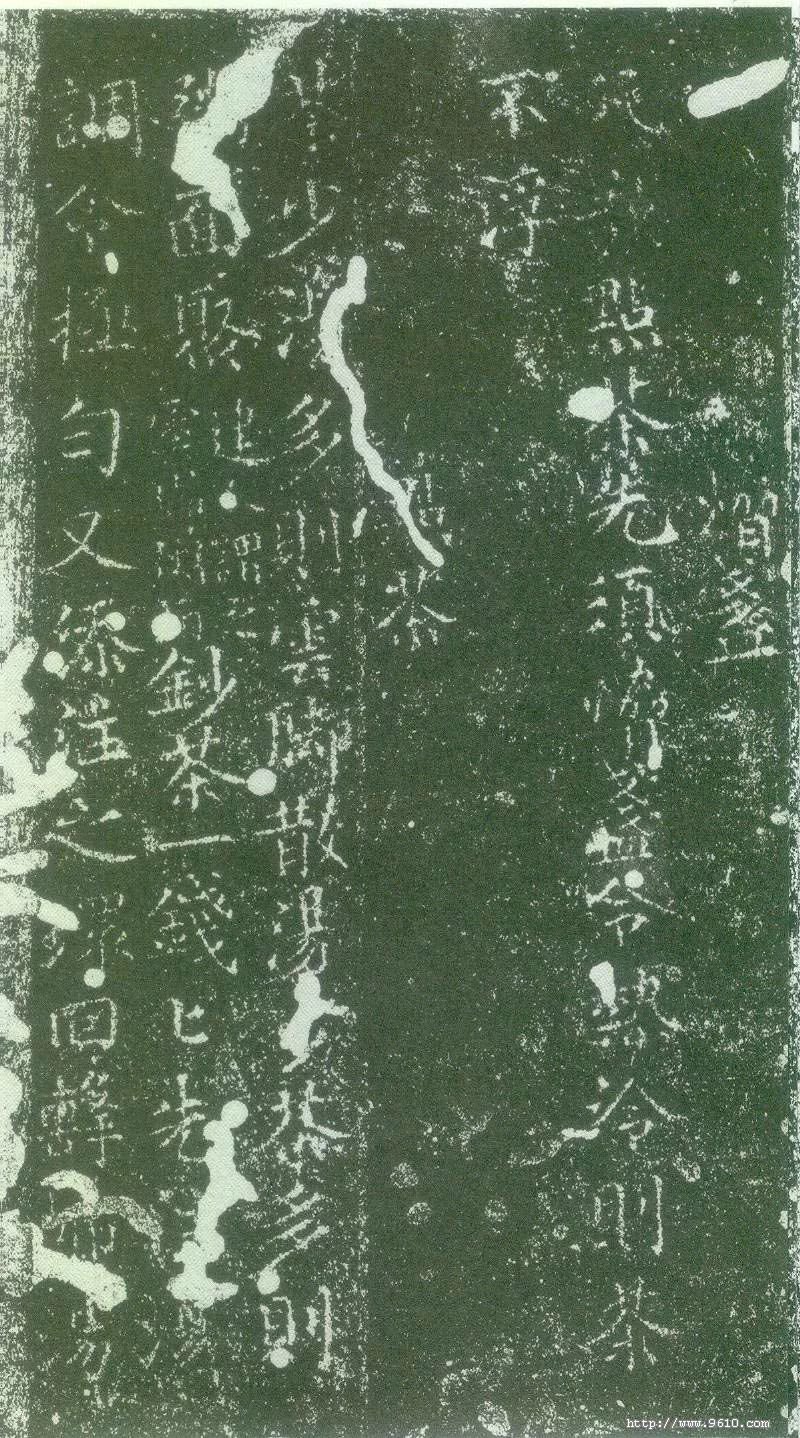 熁盞
凡欲點茶先須熁盞令熱冷則茶
不浮
點茶
茶少湯多則雲腳散湯少茶多則
粥面聚建人謂之雲腳粥面鈔茶一錢匕先湯
調令極勻又添注之環回擊拂湯
http://www.9610.com